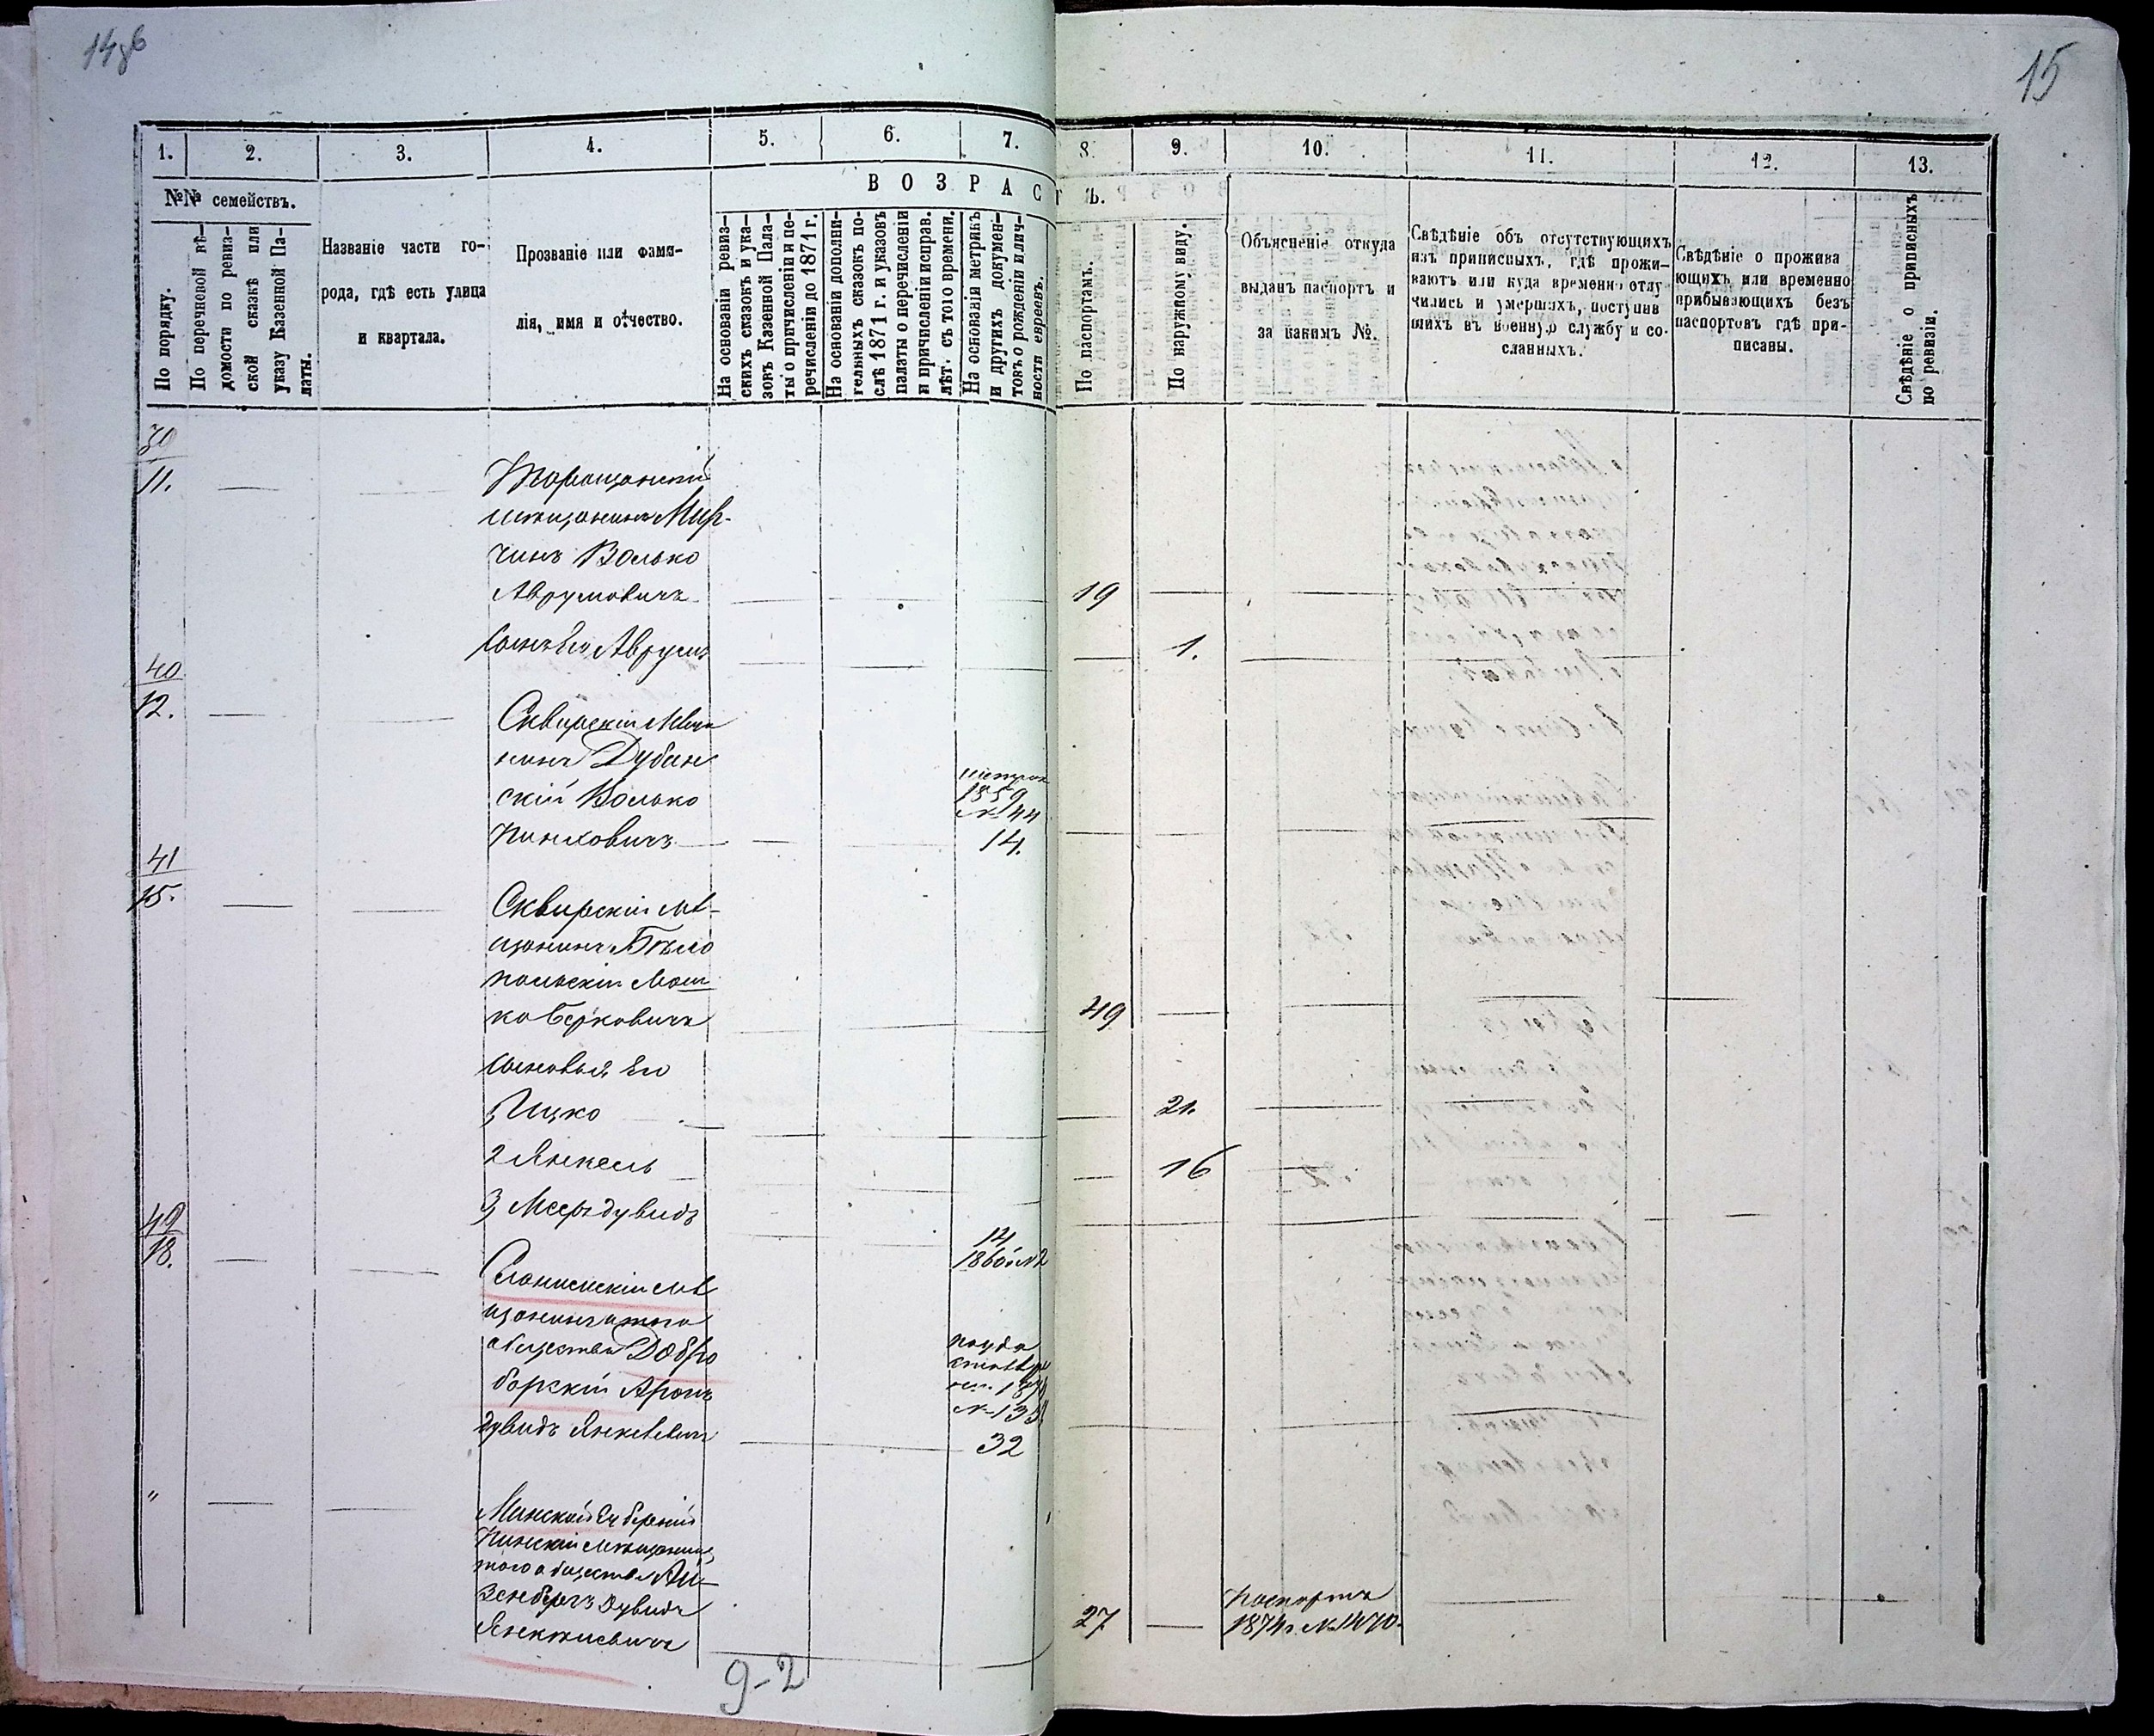 14об
15
1.
2.
3.
4.
5.
6.
7.
8.
9.
10.
11.
12.
13.
№№ семействъ.
ВОЗРАСТЪ.
По порядку.
По перечневой вѣ-
домости по ревиз-
ской сказкѣ или
указу Казенной Па-
латы.
Названіе части го-
рода, гдѣ есть улица
и квартала.
Прозваніе или фами-
лія, имя и отчество.
На основаніи ревиз-
скихъ сказокъ и ука-
зовъ Казенной Пала-
ты о причисленіи и пе-
речисленіи до 1871 г.
На основаніи дополни-
тельныхъ сказокъ по-
слѣ 1871 г. и указовъ
палаты о перечисленіи
и причисленіи исправ.
лѣт. съ того времени.
На основаніи метрикъ
и другихъ докумен-
товъ о рожденіи и лич-
ности евреевъ.
По паспортамъ.
По наружному виду.
Объясненіе откуда
выданъ паспортъ и
за какимъ №.
Свѣдѣніе объ отсутствующихъ
изъ приписныхъ, гдѣ прожи-
ваютъ или куда временно отлу
чились и умершихъ, поступив
шихъ въ военную службу и со-
сланныхъ.
Свѣдѣніе о прожива
ющихъ или временно
прибывающихъ безъ
паспортовъ гдѣ при-
писаны.
Свѣдѣніе о приписныхъ
по ревизіи.
39
11.
Таращанскій
мѣщанинъ Мир-
чинъ Волько
Аврумовичъ
19
Сынъ Его Аврумъ
1.
40
12.
Сквирскій Мѣща
нинъ Дубин
скій Волько
Пинховичъ
метрик
1859
№ 44
14.
41
15.
Сквирскій мѣ-
щанинъ Бѣло
польскій Мош
ко Берковичъ
49
сыновья Его
1, Ицко
21.
2 Янкель
16
3, Мееръ дувидъ
14
1860 г №2
42
18.
Слонимскій мѣ
щанинъ того
общества Добро
борскій Аронъ
дувидъ Янкелевичъ
№ 135
32
"
Минской Губерніи
Пинскій мѣщанинъ
того общества Ай-
зенбергъ Дувидъ
Янкелевичъ
27
паспортъ
1874 г №1470.
9-2